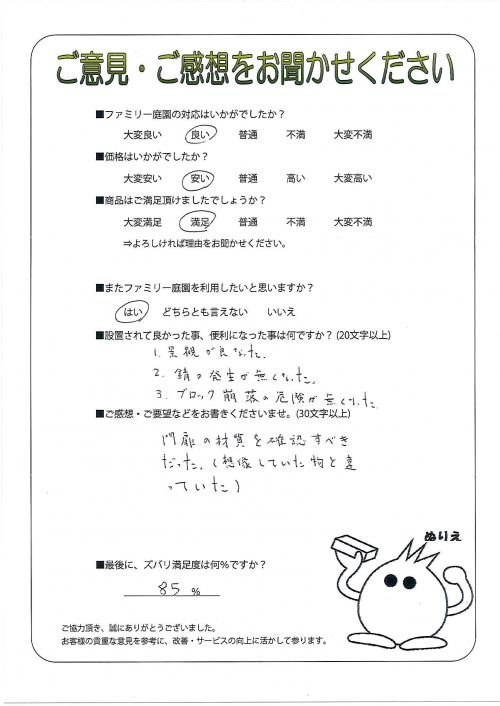 ご意見・ご感想をお聞かせください
■ファミリー庭園の対応はいかがでしたか？
大変良い　良い　普通　不満　大変不満
■価格はいかがでしたか？
大変安い　安い　普通　高い　大変高い
■商品はご満足頂けましたでしょうか？
大変満足　満足　普通　不満　大変不満
⇒よろしければ理由をお聞かせください。
■またファミリー庭園を利用したいと思いますか？
はい　どちらとも言えない　いいえ
■設置されて良かった事、便利になった事は何ですか？(20文字以上)
1. 景観が良なった.
2. 錆の発生が無くなった.
3. ブロック崩落の危険が無くなった
■ご感想・ご要望などをお書きくださいませ。(30文字以上)
門扉の材質を確認すべき
だった.(想像していた物と違
っていた)
ぬりえ
■最後に、ズバリ満足度は何％ですか？
85 %
ご協力頂き、誠にありがとうございました。
お客様の貴重な意見を参考に、改善・サービスの向上に活かして参ります。